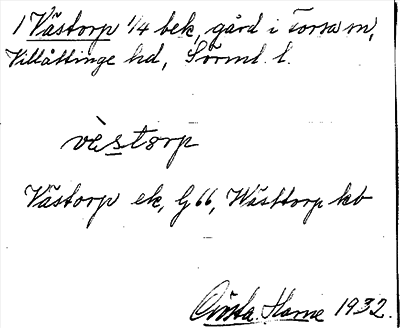 1 Västorp 1/4 bek, gård i Torsa sn,
Villåttinge hd, Sörml. l.
vèstorp
Västorp ek, G 66, Wästtorp kb
1932.